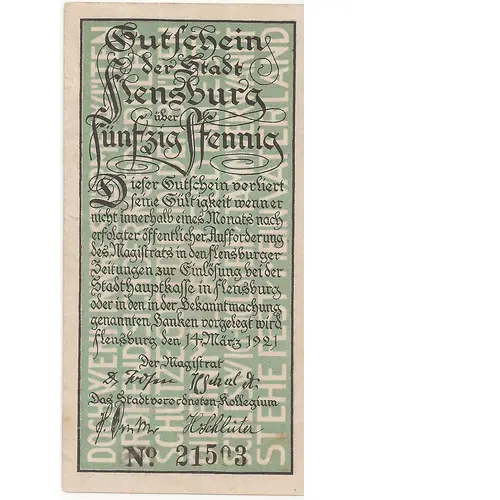 Gutschein
der Stadt
Flensburg
über
Fünfzig Pfennig
Dieser Gutschein verliert
seine Gültigkeit wenn er
nicht innerhalb eines Monats nach
erfolgter öffentlicher Aufforderung
des Magistrats in den flensburger
Zeitungen zur Einlösung bei der
Stadthauptkasse in flensburg
oder in den in der Bekanntmachung
genannten Banken vorgelegt wird
flensburg den 14. März 1921
Der Magistrat
Das Stadtverordneten-Kollegium
H Schlüter
No 21503